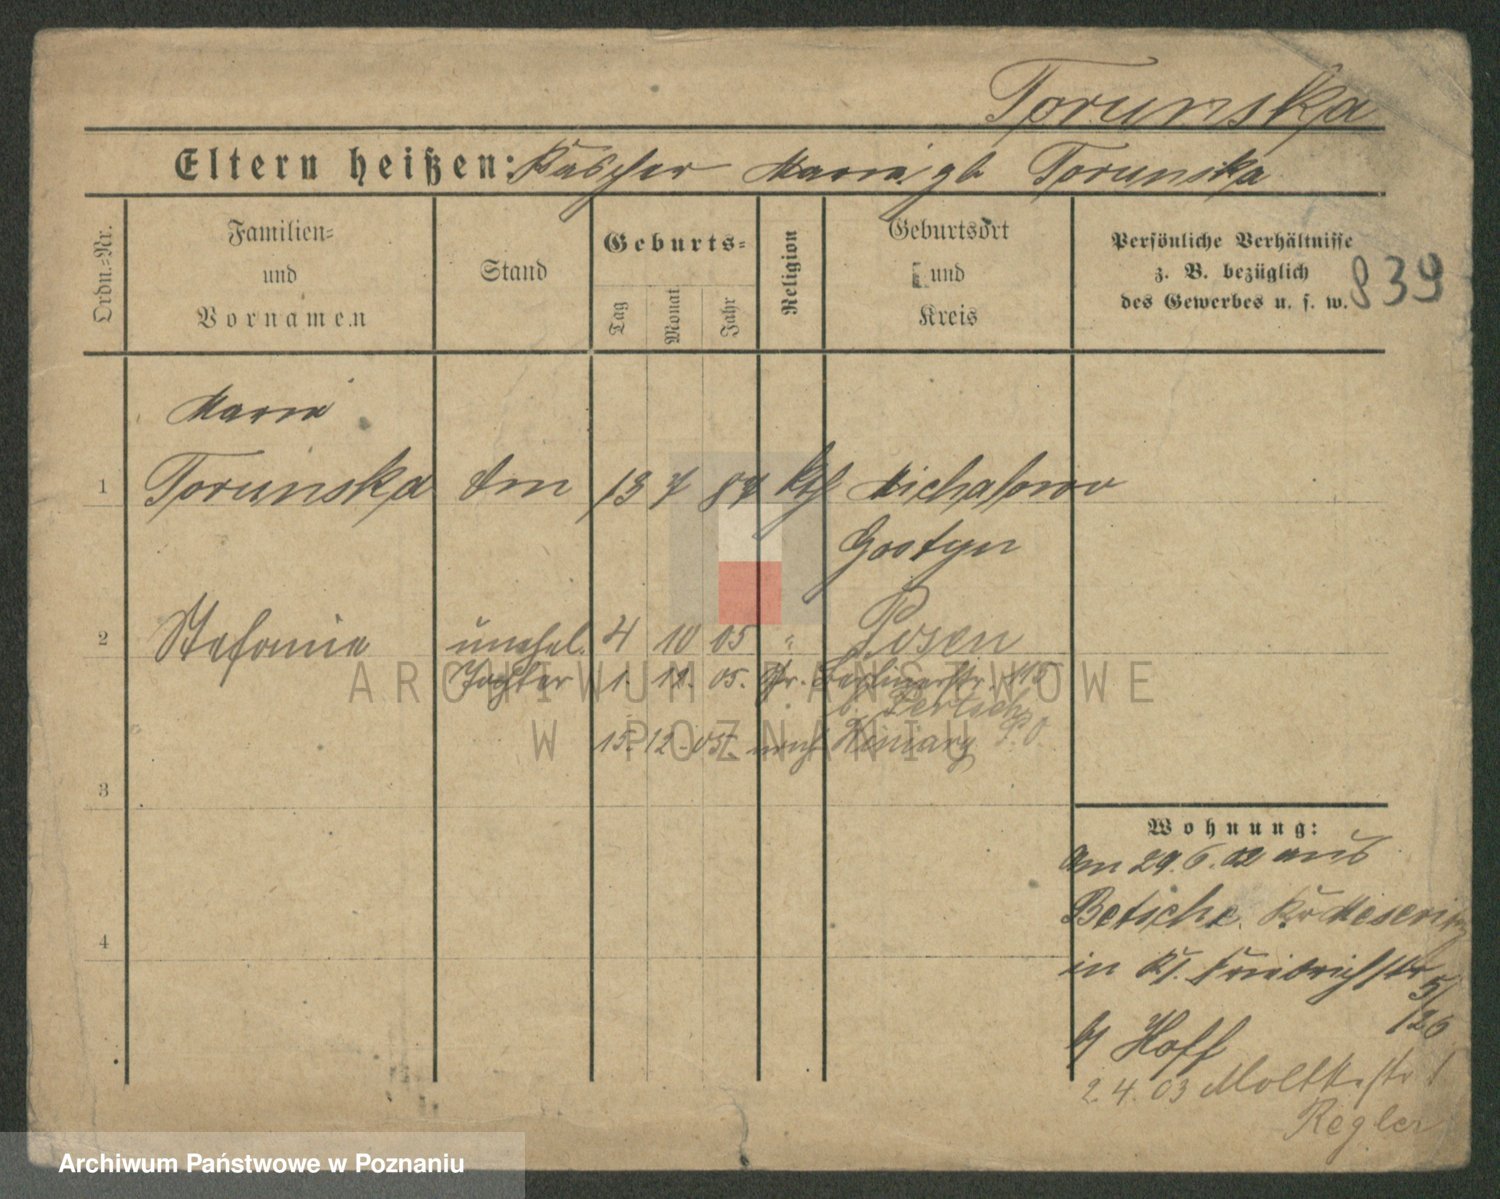 Torunska
Eltern heißen: Kascher Maria gb Torunska
Ordn.=Nr.
Familien=
und
Vornamen
Stand
Geburts=
Tag
Monat
Jahr
Religion
Geburtsort
und
Kreis
Persönliche Verhältnisse
z. B. bezüglich
des Gewerbes u. s. w.
839
Maria
1 Torunska 13 7 87 kth Michalowo
Gostyn
2 Stefania unehel. 4 10 05 " Posen
Tochter 1. 12. 05. Gr. Berlinerstr.
b. Bertsch
15. 12. 05. nach
3
4
Wohnung:
Am 29.6.02 aus
Betsche Kr Meseritz
in Friedrichstr
5/26
b/ Hoff
2.4.03 Moltkestr 1
Regler
ARCHIWUM PAŃSTWOWE
W POZNANIU
Archiwum Państwowe w Poznaniu